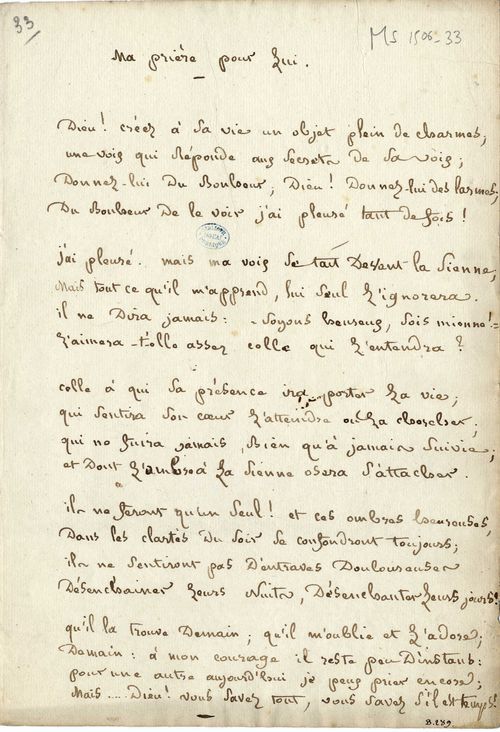 33
Ms 1506-33
Ma prière pour lui.
Dieu! créez à sa vie un objet plein de charmes;
une voix qui réponde aux secrets de sa voix;
Donnez-lui Du Bonheur, Dieu! Donnez-lui des larmes;
Du Bonheur De le voir j'ai pleuré tant de fois!
j'ai pleuré. mais ma voix se tait Devant la sienne,
Mais tout ce qu'il m'apprend, lui seul l'ignorera.
il ne Dira jamais: - soyons heureux, sois mienne! -
L'aimera-t'elle assez celle qui l'entendra?
celle à qui sa présence ira porter la vie;
qui sentira son cœur l'attendre où la chercher;
qui ne fuira jamais, Bien qu'à jamais suivie,
et Dont l'ombre à la sienne osera s'attacher.
ils ne feront qu'un seul! et ces ombres heureuses,
Dans les clartés Du soir se confondront toujours;
ils ne sentiront pas D'entraves Douloureuses
Désenchainer leurs Nuits, Désenchanter leurs jours!
qu'il la trouve Demain; qu'il m'oublie et l'adore;
Demain: à mon courage il reste peu D'instans:
pour une autre aujourd'hui je peux prier encore;
Mais .... Dieu! vous savez tout, vous savez s'il est temps!
B.289